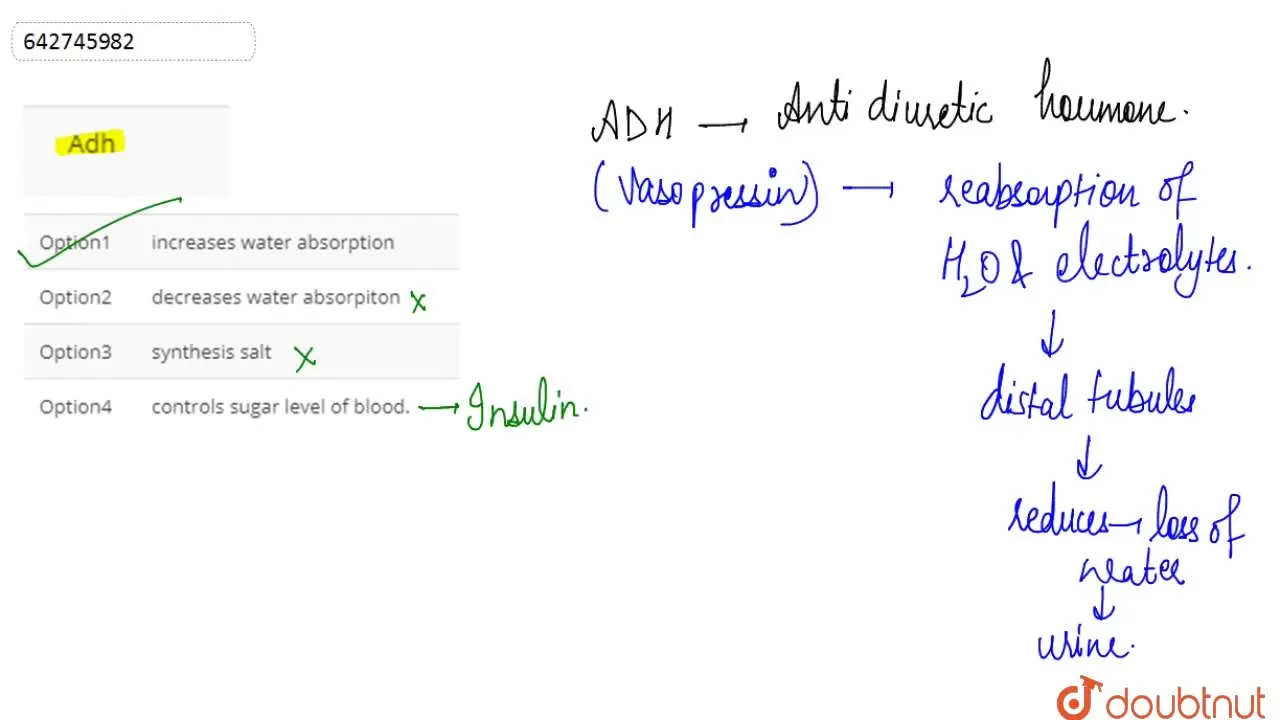 642745982
Adh
Option1 increases water absorption
Option2 decreases water absorpiton x
Option3 synthesis salt x
Option4 controls sugar level of blood. → Insulin.
ADH → Anti diuretic houmone.
(Vasopressin) → reabsorption of
H2O & electrolytes.
↓
distal tubules
↓
reduces → loss of
water
↓
urine.
doubtnut